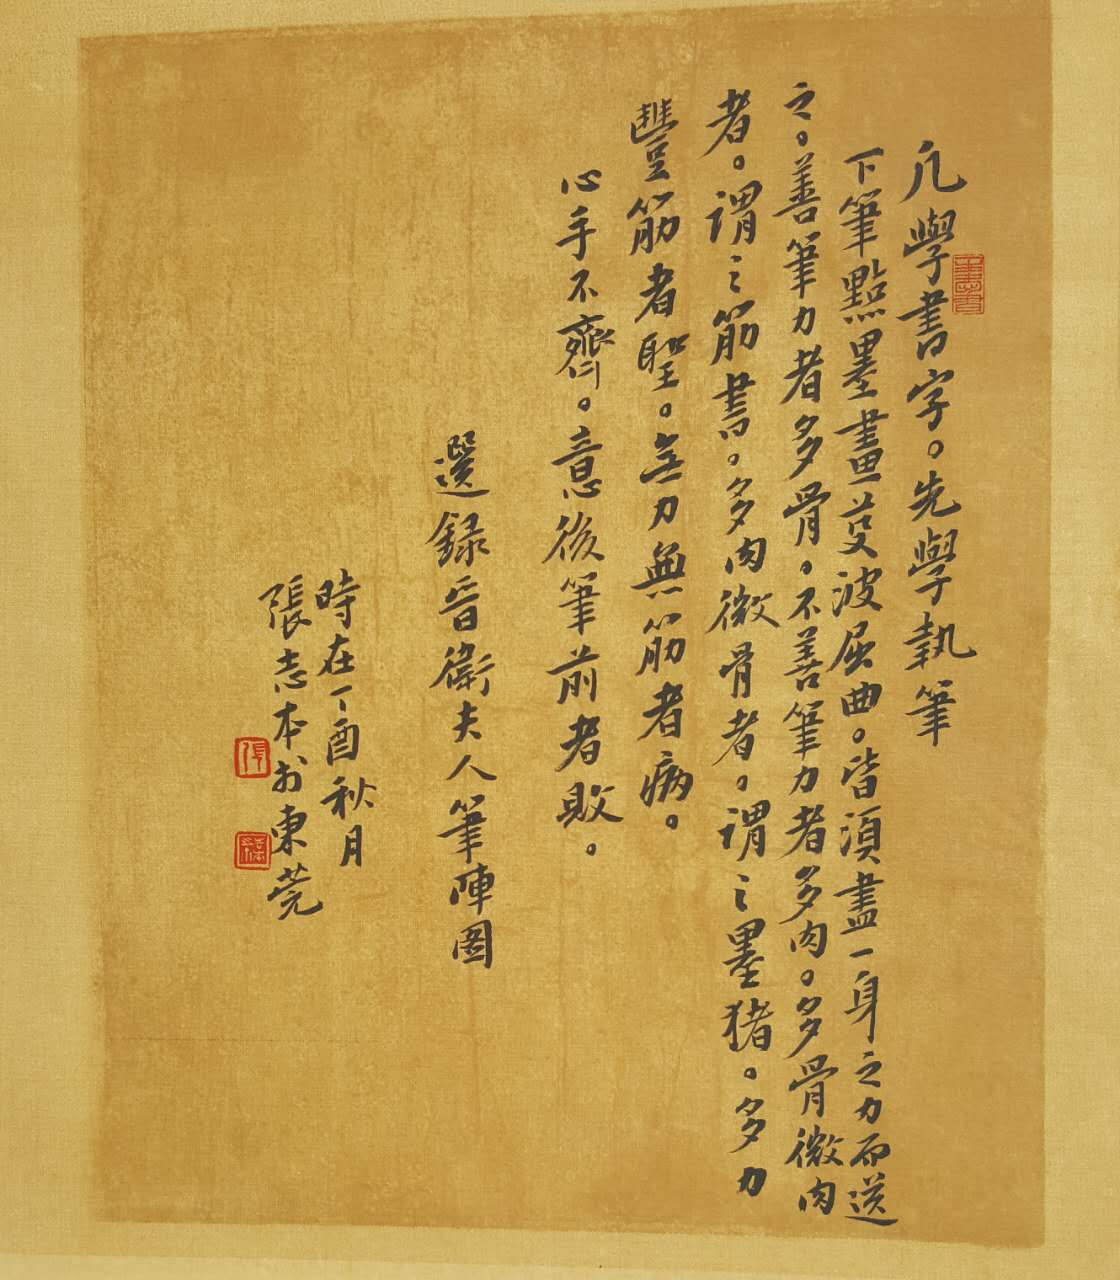 凡學書字。先學執筆
下筆點墨畫芟波屈曲。皆須盡一身之力而送
之。善筆力者多骨。不善筆力者多肉。多骨微肉
者。謂之筋書。多肉微骨者。謂之墨猪。多力
豐筋者聖。無力無筋者病。
心手不齊。意後筆前者敗。
選錄晉衛夫人筆陣圖
時在丁酉秋月
張志本於東莞